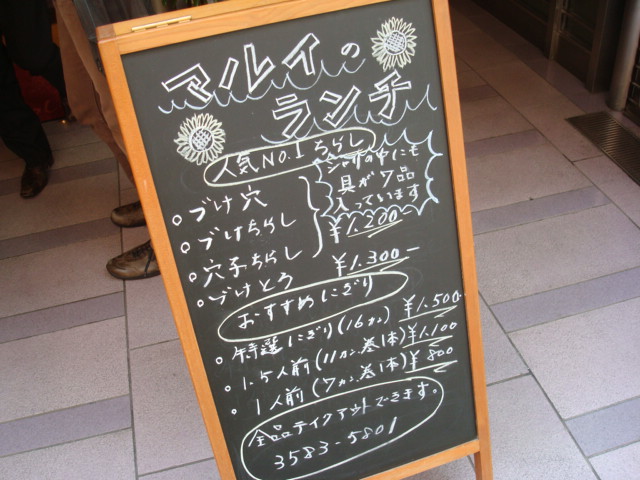 マルイの
ランチ
人気NO.1 ちらし
シャリの中にも
具が7品
入っています
。づけ穴
。づけちらし
。穴子ちらし
¥1.200
。づけとろ ¥1.300-
おすすめにぎり
。特選にぎり(16カン) ¥1.500
。1.5人前(11カン、巻1本) ¥1.100
。1人前(7カン、巻1本) ¥800
全品テイクアウトできます。
3583-5801